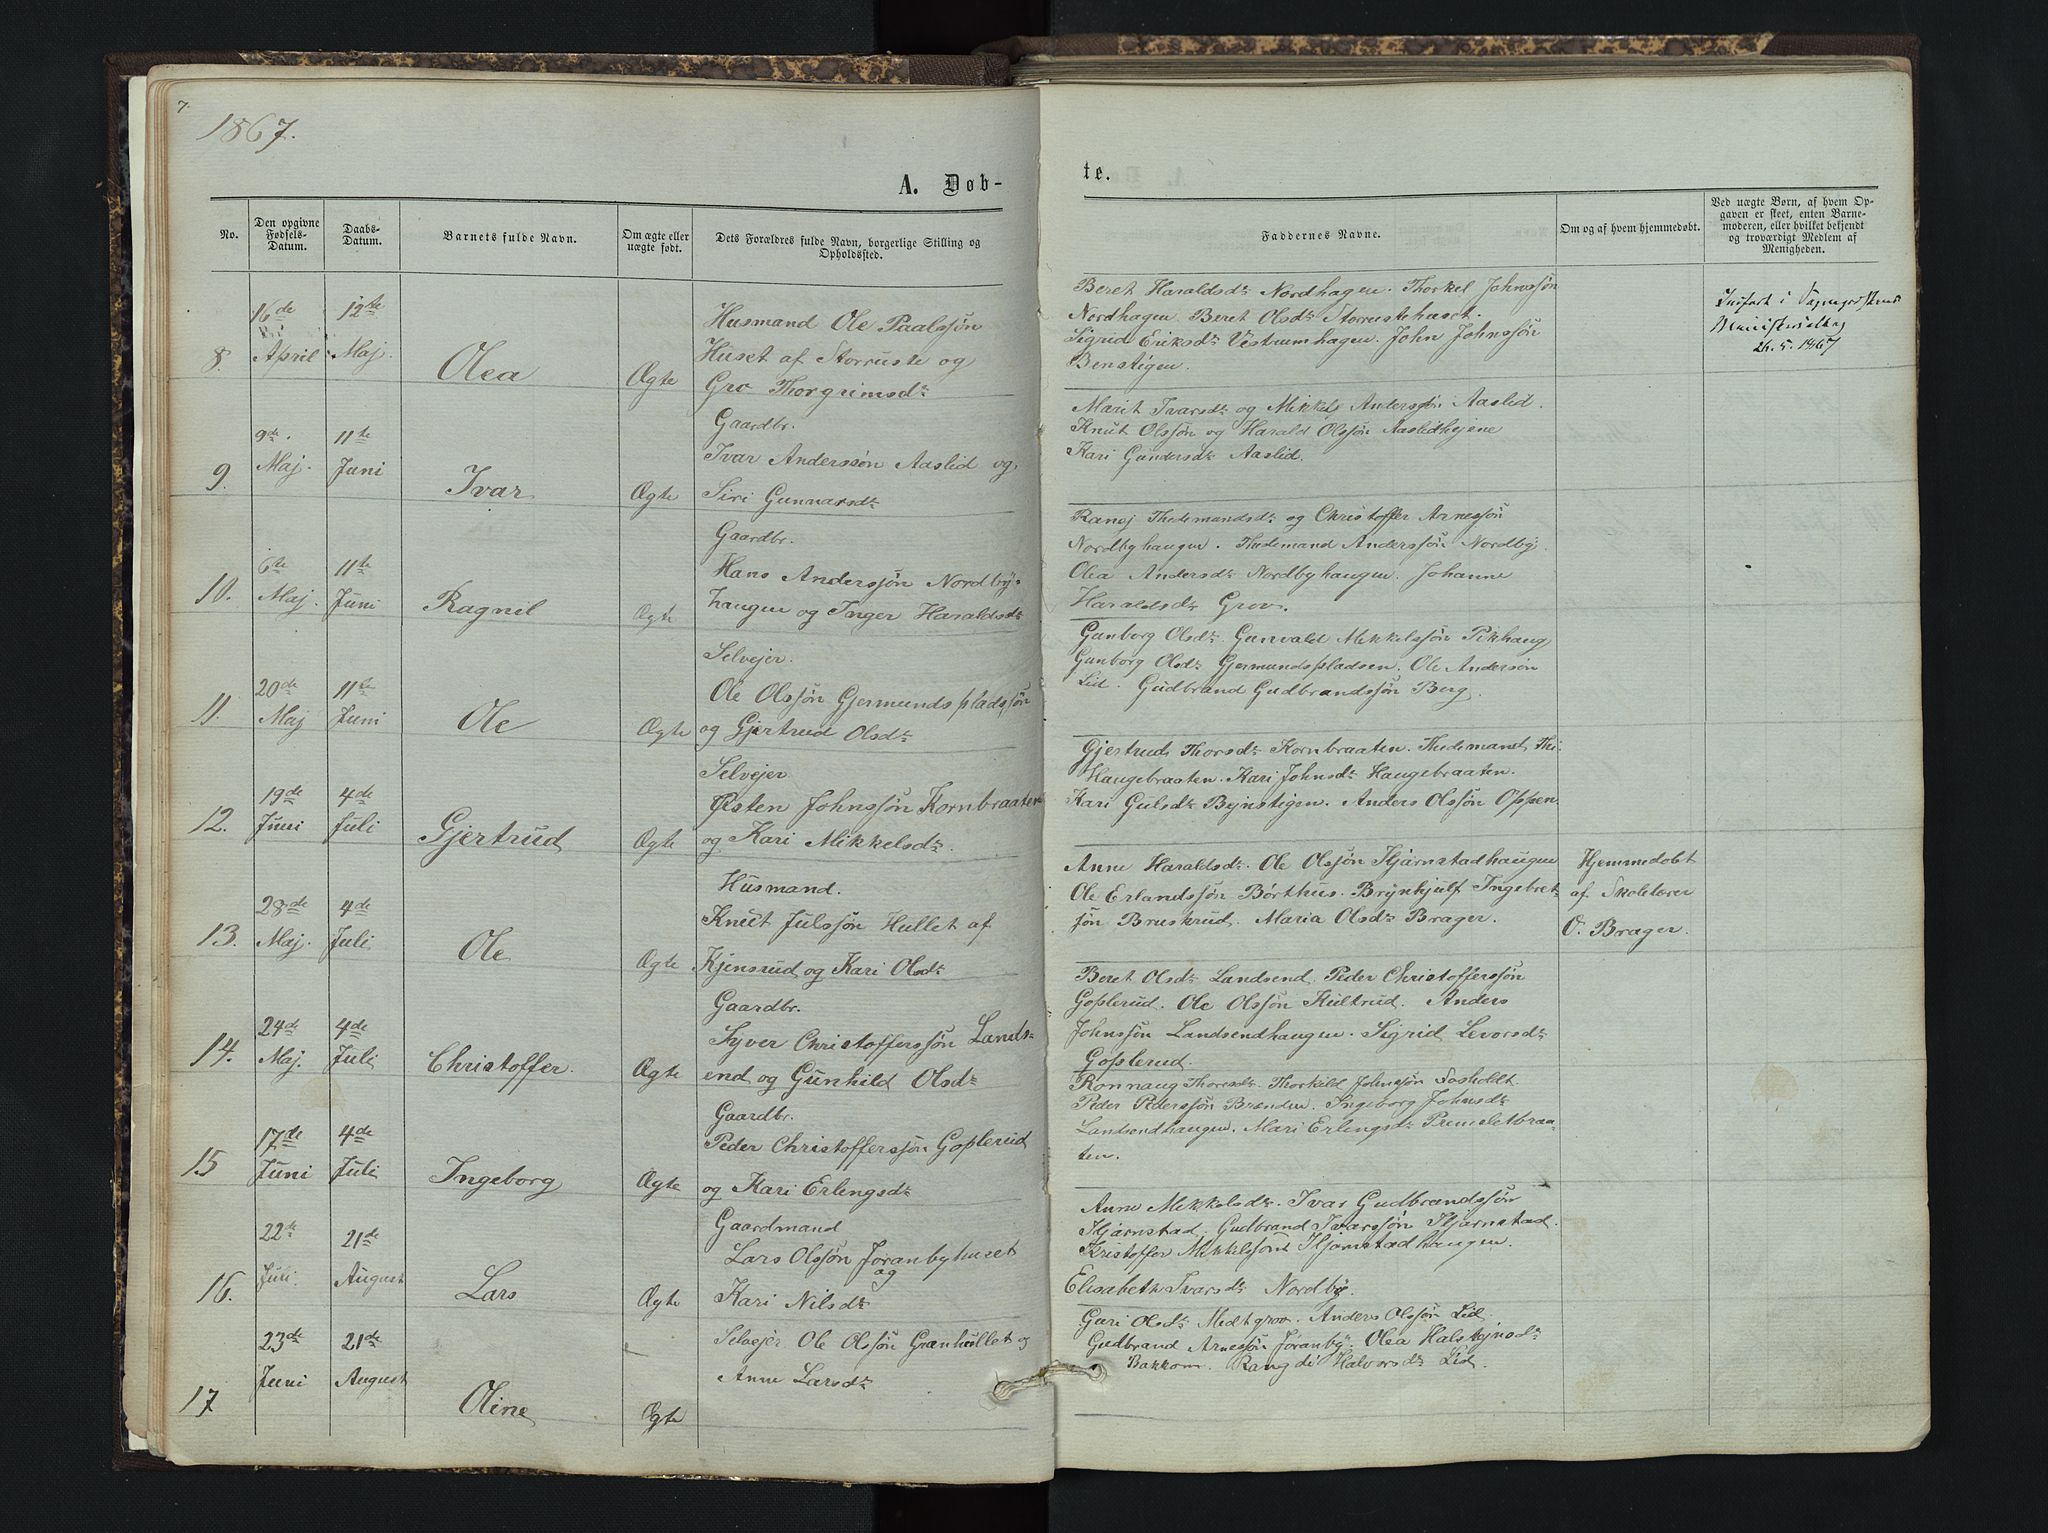 7.
1867.
A. Døb-
te.
No.
Den opgivne Fødsels-Datum.
Daabs-Datum.
Barnets fulde Navn.
Om ægte eller uægte født.
Dets Forældres fulde Navn, borgerlige Stilling og Opholdssted.
Faddernes Navne.
Om og af hvem hjemmedøbt.
Ved uægte Børn, af hvem Op-
gaven er skeet, enten Barne-
moderen, eller hvilket bekjendt
og troværdigt Medlem af
Menigheden.
8.
16de April
12te Maj.
Olea
Ægte
Husmand Ole Paalssøn
Huset af Storruste og
Gro Thorgrimsdr
Beret Haraldsdr Nordhagen. Thorkel Johnssøn
Nordhagen. Beret Olsdr Storrustehuset.
Sigrid Eriksdr Vestrumhagen. John Johnssøn
Benstigen.
Indført i
Ministerialbog
26.5.1867
9.
9de Maj.
11te Juni
Ivar
Ægte
Gaardbr.
Ivar Anderssøn Aaslid og
Siri Gunnarsdr
Marit Ivarsdr og Mikkel Anderssøn Aaslid.
Knut Olssøn og Harald Olssøn Aaslidhejene
Kari Gundersdr Aaslid.
10.
6te Maj.
11te Juni
Ragnil
Ægte
Gaardbr.
Hans Anderssøn Nordby-
haugen og Inger Haraldsdr
Ranej Thedemandsdr og Christoffer Arnessøn
Nordbyhaugen. Thedemand Anderssøn Nordby.
Olea Andersdr Nordbyhaugen. Johanne
Haraldsdr Grov.
11.
20de Maj
11te Juni
Ole
Ægte
Selvejer.
Ole Olssøn Gjermundspladssøn
og Gjertrud Olsdr
Gunborg Olsdr Gunvald Mikkelssøn Pikhaug
Gunborg Olsdr Gjermundspladsen. Ole Andersøn
Lid. Gudbrand Gudbrandssøn Berg.
12.
19de Juni
4de Juli
Gjertrud
Ægte
Selvejer
Østen Johnssøn Kornbraaten
og Kari Mikkelsdr.
Gjertrud Thorsdr Kornbraaten. Thedemand Thi-
Haugebraaten. Kari Johnsdr Haugebraaten.
Kari Gulsdr Bejnstigen. Anders Olssøn Oppen.
13.
28de Maj.
4de Juli
Ole
Ægte
Husmand.
Knut Julssøn Hullet af
Kjensrud og Kari Olsdr
Anne Haraldsdr. Ole Olssøn Hjarnstadhaugen
Ole Erlandssøn Børthus. Brynhjulf Ingebret-
søn Bruskrud. Maria Olsdr Brager.
Hjemmedøbt
af Skolelærer
O. Brager.
14.
24de Maj.
4de Juli
Christoffer.
Ægte
Gaardbr.
Syver Christofferssøn Lands-
end og Gunhild Olsdr
Beret Olsdr Landsend. Peder Christofferssøn
Goplerud. Ole Olssøn Hultrud. Anders
Johnssøn Landsendhaugen. Sigrid Levorsdr
Goplerud.
15
17de Juni
4de Juli
Ingeborg
Ægte
Gaardbr.
Peder Christofferssøn Goplerud
og Kari Erlingsdr
Ronnaug Thoresdr. Thorkild Johnssøn Fosholdt.
Peder Pederssøn Brænden. Ingeborg Johnsdr
Landsendhaugen. Mari Erlingsdr Præmeletbraa-
ten.
16.
22de Juli.
21de August
Lars
Ægte
Gaardmand
Lars Olssøn Joranbyhuset
og
Kari Nilsdr
Anne Mekkelsdr. Ivar Gudbrandssøn
Hjarnstad. Gudbrand Ivarssøn Hjarnstad.
Kristoffer Mikkelssøn Hjarnstadhaugen.
Elisabeth Ivarsdr Nordby.
17
23de Juni
21de August
Oline
Ægte
Selvejer Ole Olssøn Grænhullet og
Anne Larsdr
Guri Olsdr Medtgrov. Anders Olssøn Lid.
Gudbrand Arnessøn Joranby. Olea Halstejnsdr
Bakkom. Rangdi Halvorsdr Lid.